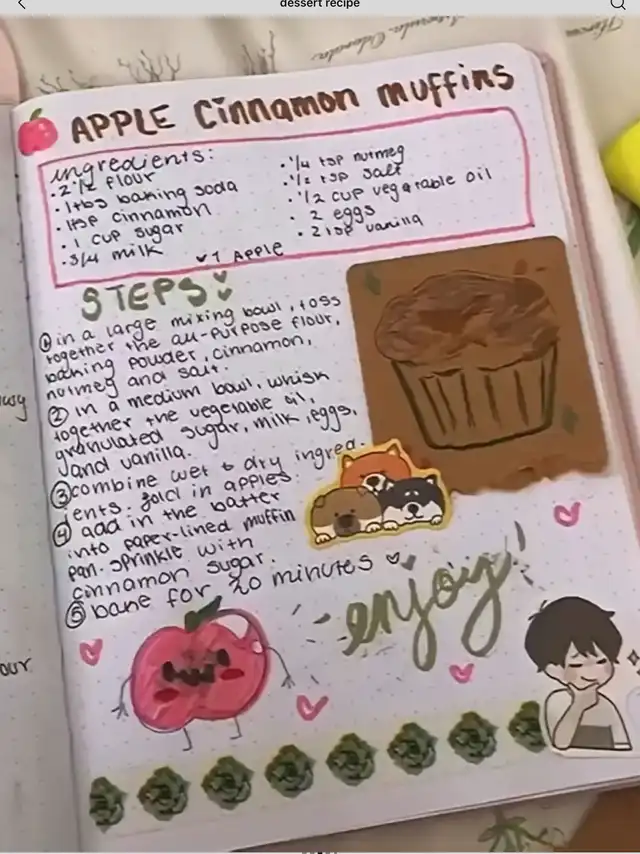 dessert recipe
APPLE Cinnamon muffins
ingredients:
• 2 1/2 flour
• 1 tbs baking soda
• 1 tsp cinnamon
• 1 cup sugar
• 3/4 milk
• 1/4 tsp nutmeg
• 1/2 tsp salt
• 1/2 cup vegetable oil
• 2 eggs
• 2 tsp vanilla
♥ 1 Apple
STEPS
① in a large mixing bowl, toss
together the all-purpose flour,
baking powder, cinnamon,
nutmeg and salt.
② in a medium bowl, whisk
together the vegetable oil,
granulated sugar, milk, eggs,
and vanilla.
③ combine wet & dry ingred-
ients: fold in apples
④ add in the batter
into paper-lined muffin
pan. sprinkle with
cinnamon sugar.
⑤ bake for 20 minutes
enjoy!